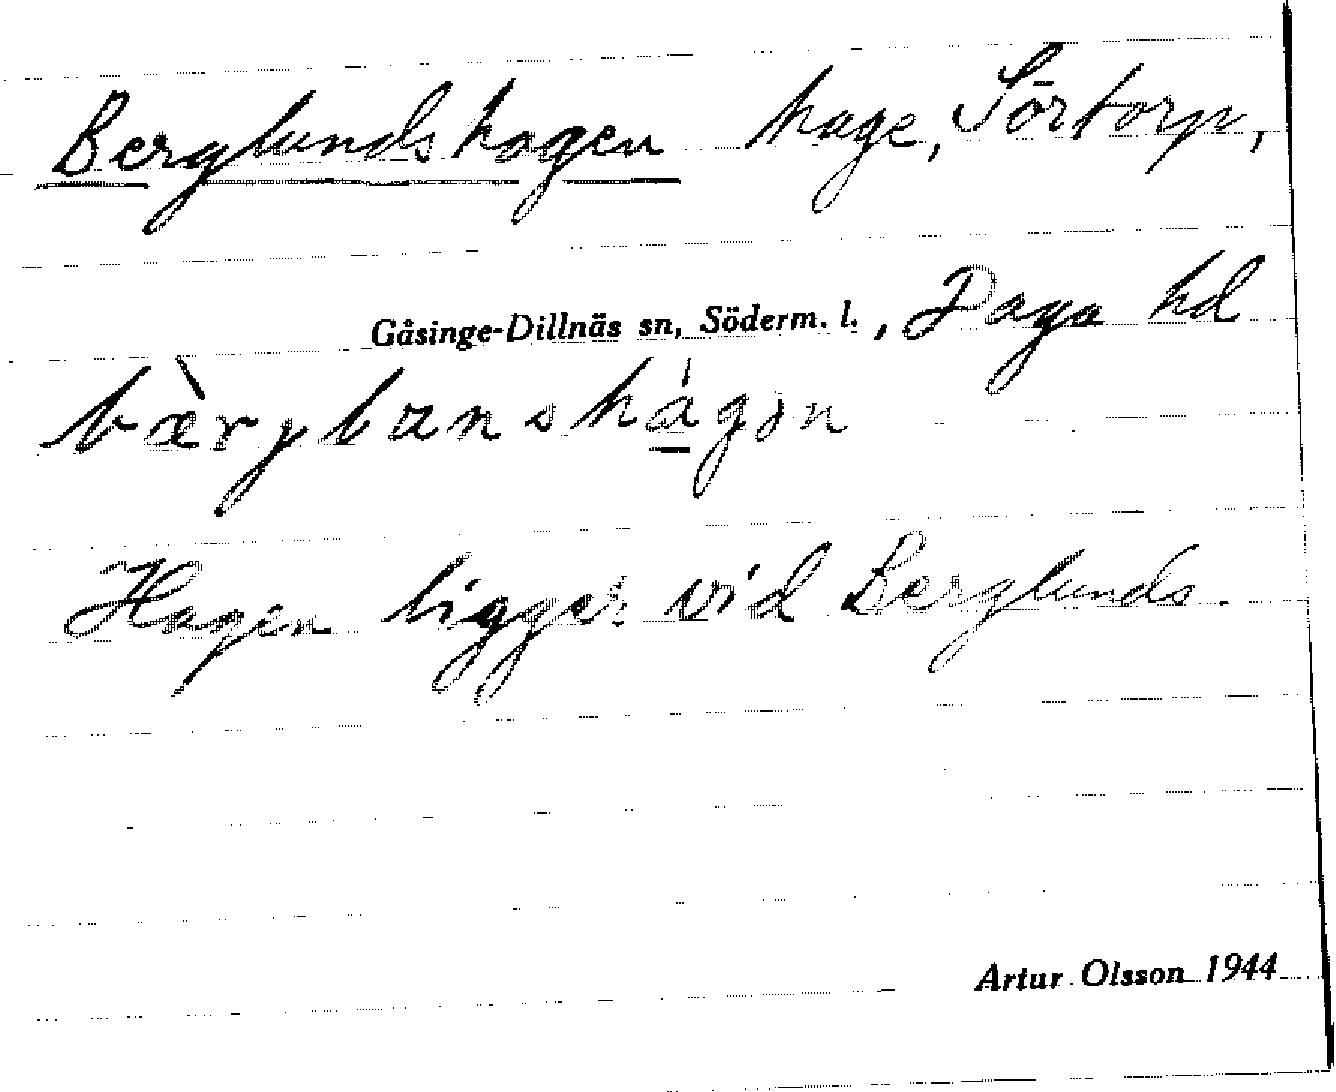 Berglundshagen hage, Sörtorp,
Gåsinge-Dillnäs sn, Söderm. l., Daga hd
bæ̀rjlanshágən
Hagen ligger vid Berglunds.
Artur Olsson 1944